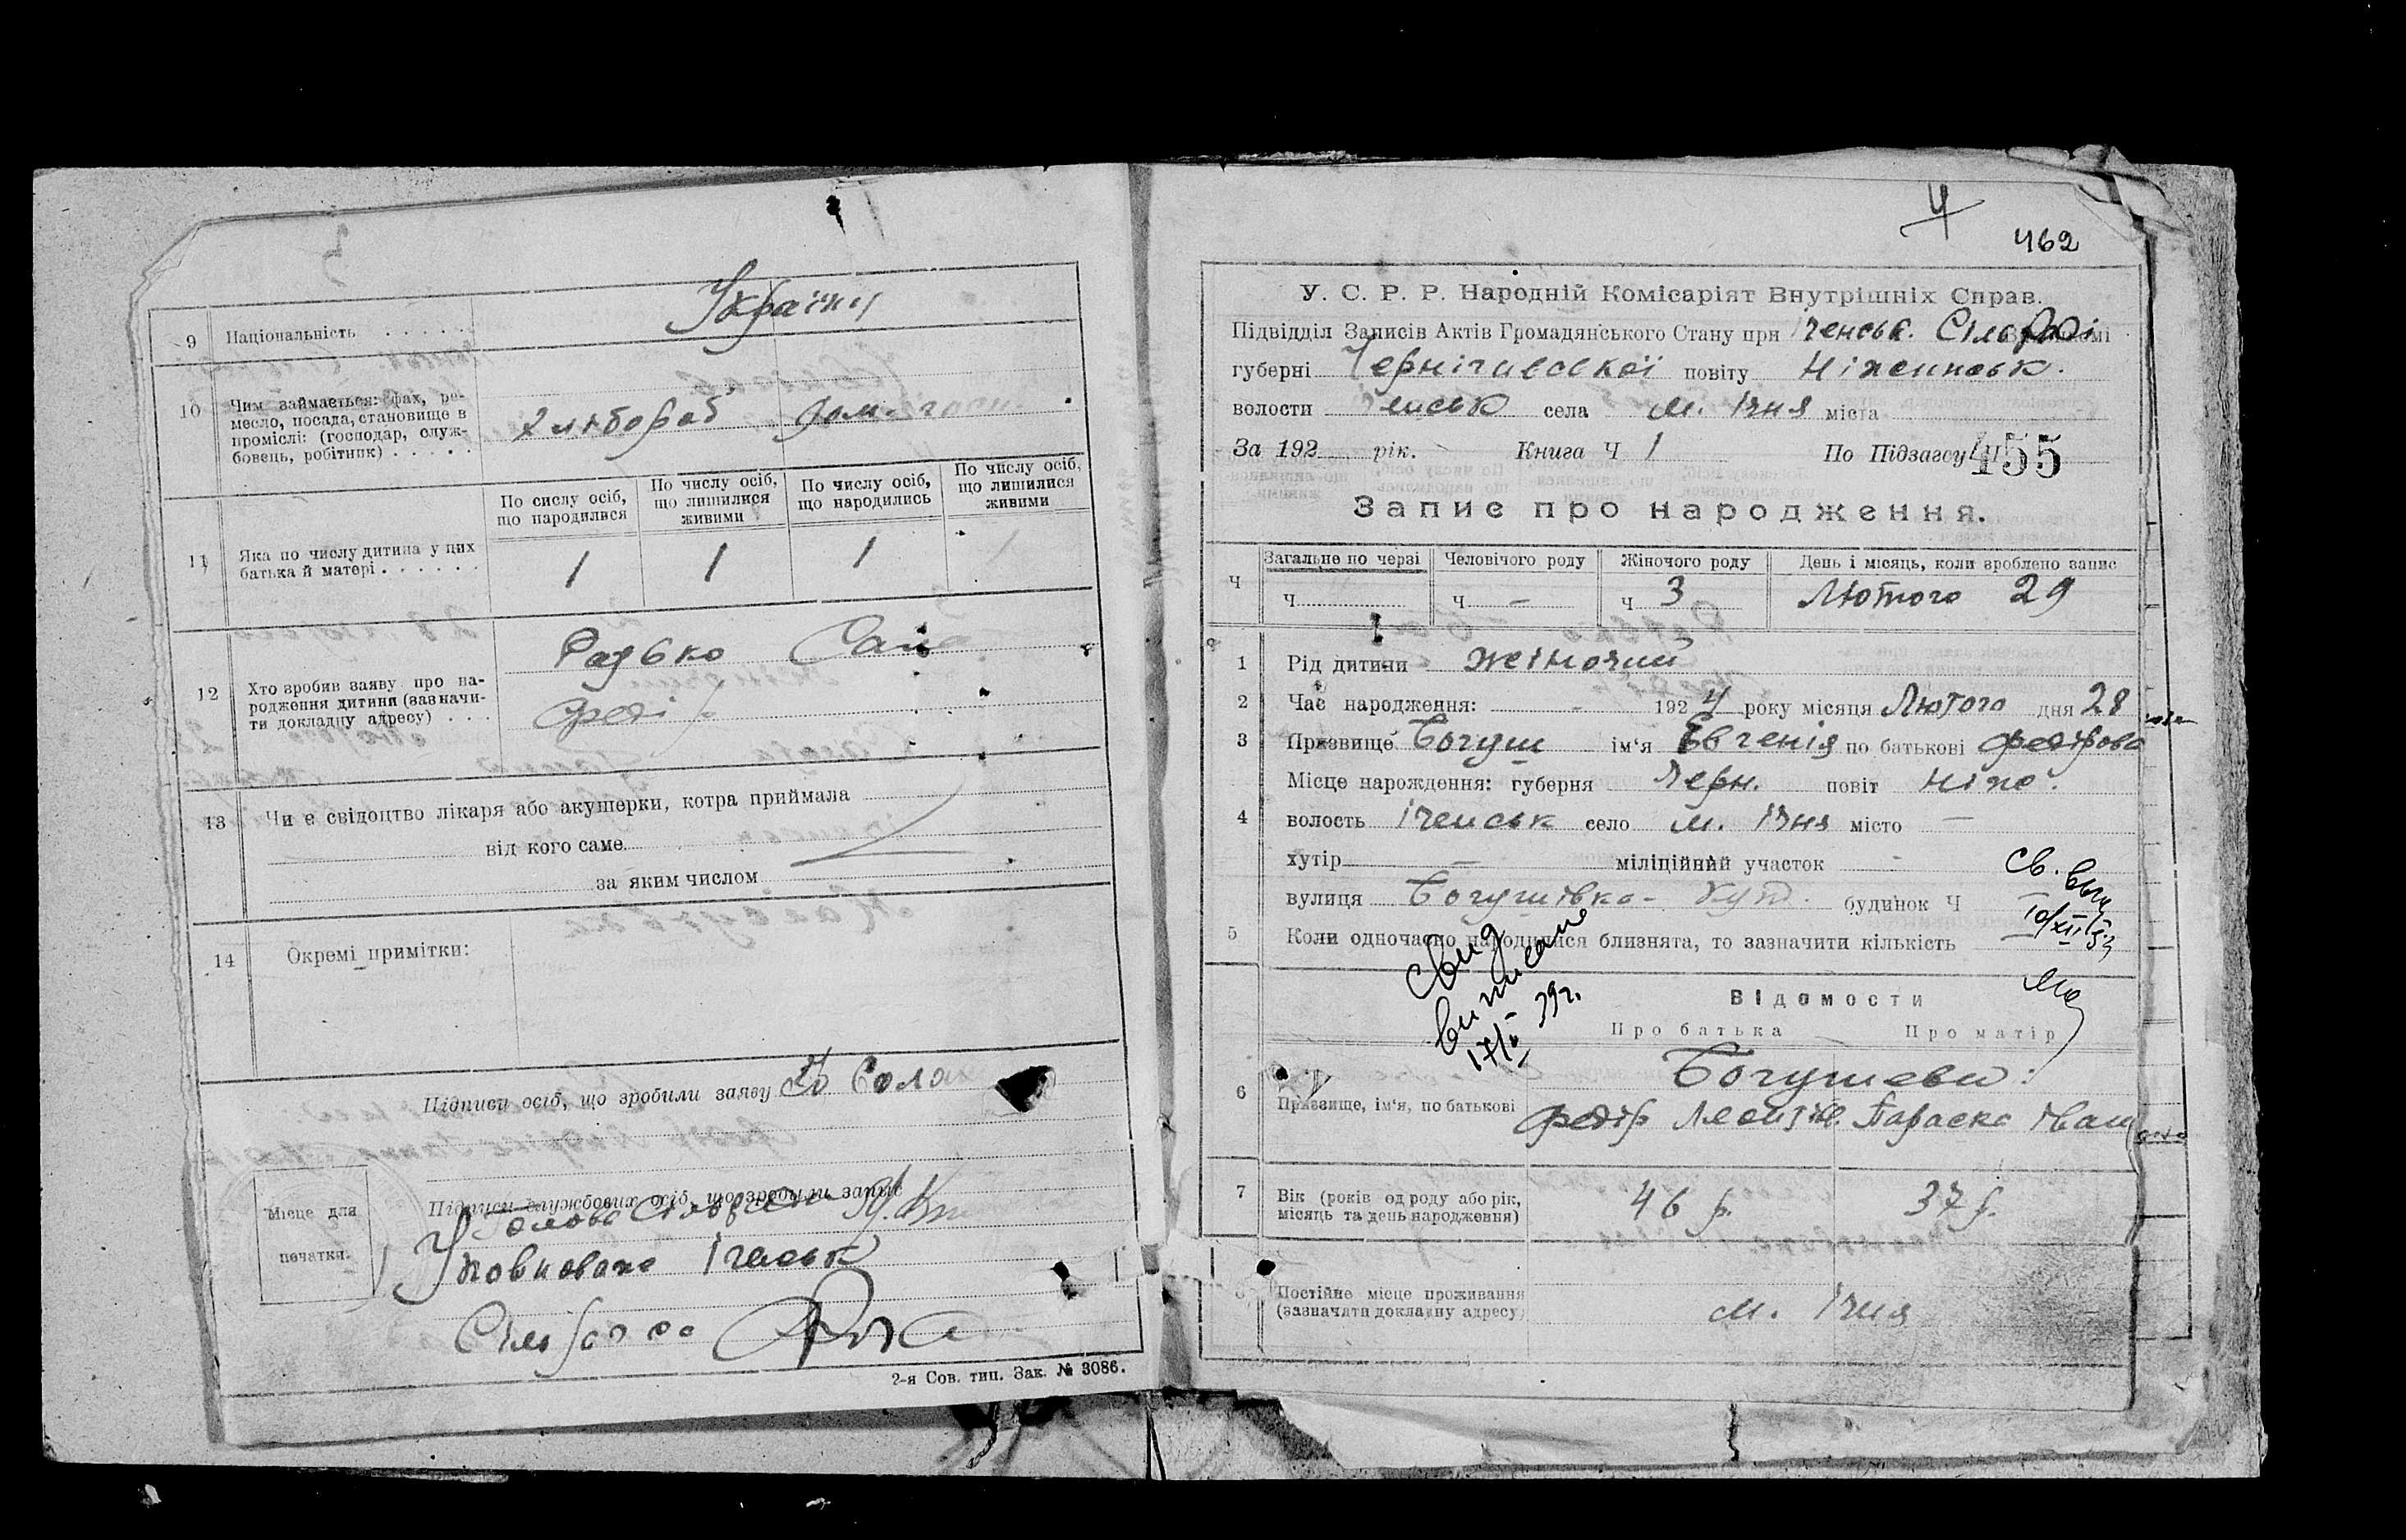 9 Національність . . . . . Україн
10 Чим займається: фах, ре-
месло, посада, становище в
проміслі: (господар, служ-
бовець, робітник) . . . . .
Хлібороб Дом. госп.
По сислу осіб, що народилися
По числу осіб, що лишилися живими
По числу осіб, що народились
По числу осіб, що лишилися живими
11 Яка по числу дитина у цих
батька й матері . . . . . .
1 1 1 1
12 Хто зробив заяву про на-
родження дитини (зазначи-
ти докладну адресу) . . .
Радько
13 Чи є свідоцтво лікаря або акушерки, котра приймала
від кого саме
за яким числом
14 Окремі примітки:
Підписи осіб, що зробили заяву
Підписи службових осіб, що зробили запис
Місце для
печатки.
Голова
Уповноважо Іченськ
2-я Сов. тип. Зак. № 3086.
4
462
У. С. Р. Р. Народній Комісаріят Внутрішніх Справ.
Підвідділ Записів Актів Громадянського Стану при Іченськ. Сільраді
губерні Чернігивської повіту Ніженськ.
волости Іченськ села м. Ічня міста
За 192 рік. Книга Ч 1 По Підзагсу Ч 455
Запис про народження.
Ч Загальне по черзі Человічого роду Жіночого роду День і місяць, коли зроблено запис
Ч Ч – Ч 3 Лютого 29
1 Рід дитини жіночий
2 Час народження: 1924 року місяця Лютого дня 28
3 Призвище Богуш ім‘я Євгенія по батькові Федірова
Місце нарождення: губерня Черн. повіт Ніж.
4 волость Іченськ село м. Ічня місто —
хутір — міліційний участок -
вулиця Богушівка- будинок Ч
5 Коли одночасно народилися близнята, то зазначити кількість
Св. выд
10/XII
Свид
виписане
39г.
Відомости
Про батька Про матір
6 Призвище, ім‘я, по батькові
Богушеви:
Федір Параска Іван
7 Вік (років од роду або рік,
місяць та день народження)
46 р. 37 р.
8 Постійне місце проживання
(зазначити докладну адресу)
м. Ічня